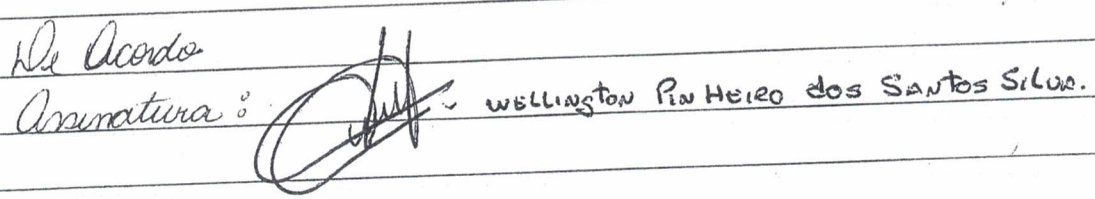 De Acordo
Assinatura: - WELLINGTON PINHEIRO dos SANTOS SILVA.